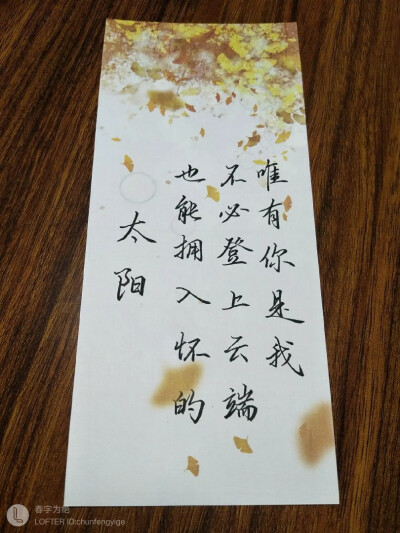 唯有你是我
不必登上云端
也能拥入怀的
太阳
春字为馆
LOFTER ID:chunfengyige